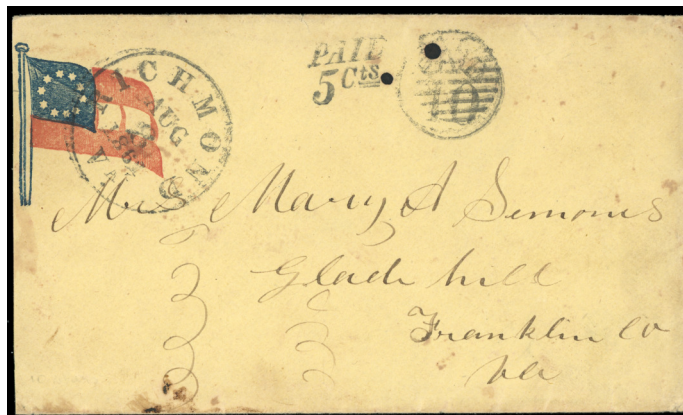 RICHMOND VA.
AUG
186
PAID
5 Cts
PAID
10
Mrs Mary A Semones
Glade hill
Franklin Co
Va